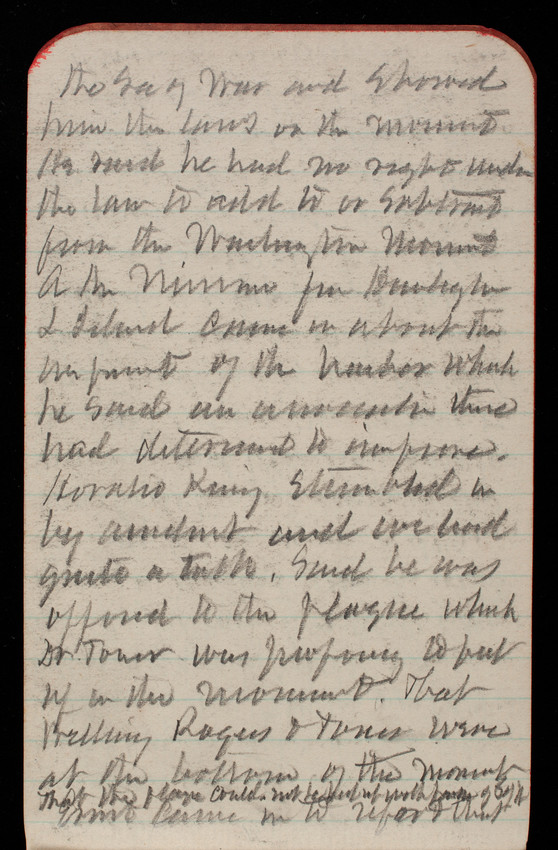 the Sec of War and Showed
him the laws on the monument
He said he had no right under
the law to add to or Subtract
from the Washington Monument
A Mr for
L Island came in about the
of the harbor which
he said an association there
had determined to improve.
Horatio King Stumbled in
by accident and we had
quite a talk. Said he was
opposed to the plaque which
Dr Toner was proposing to put
up in the monument. That
Welling Rogers & Toner were
at the bottom of the moment
That the plaque could not be put up without
came in to report that